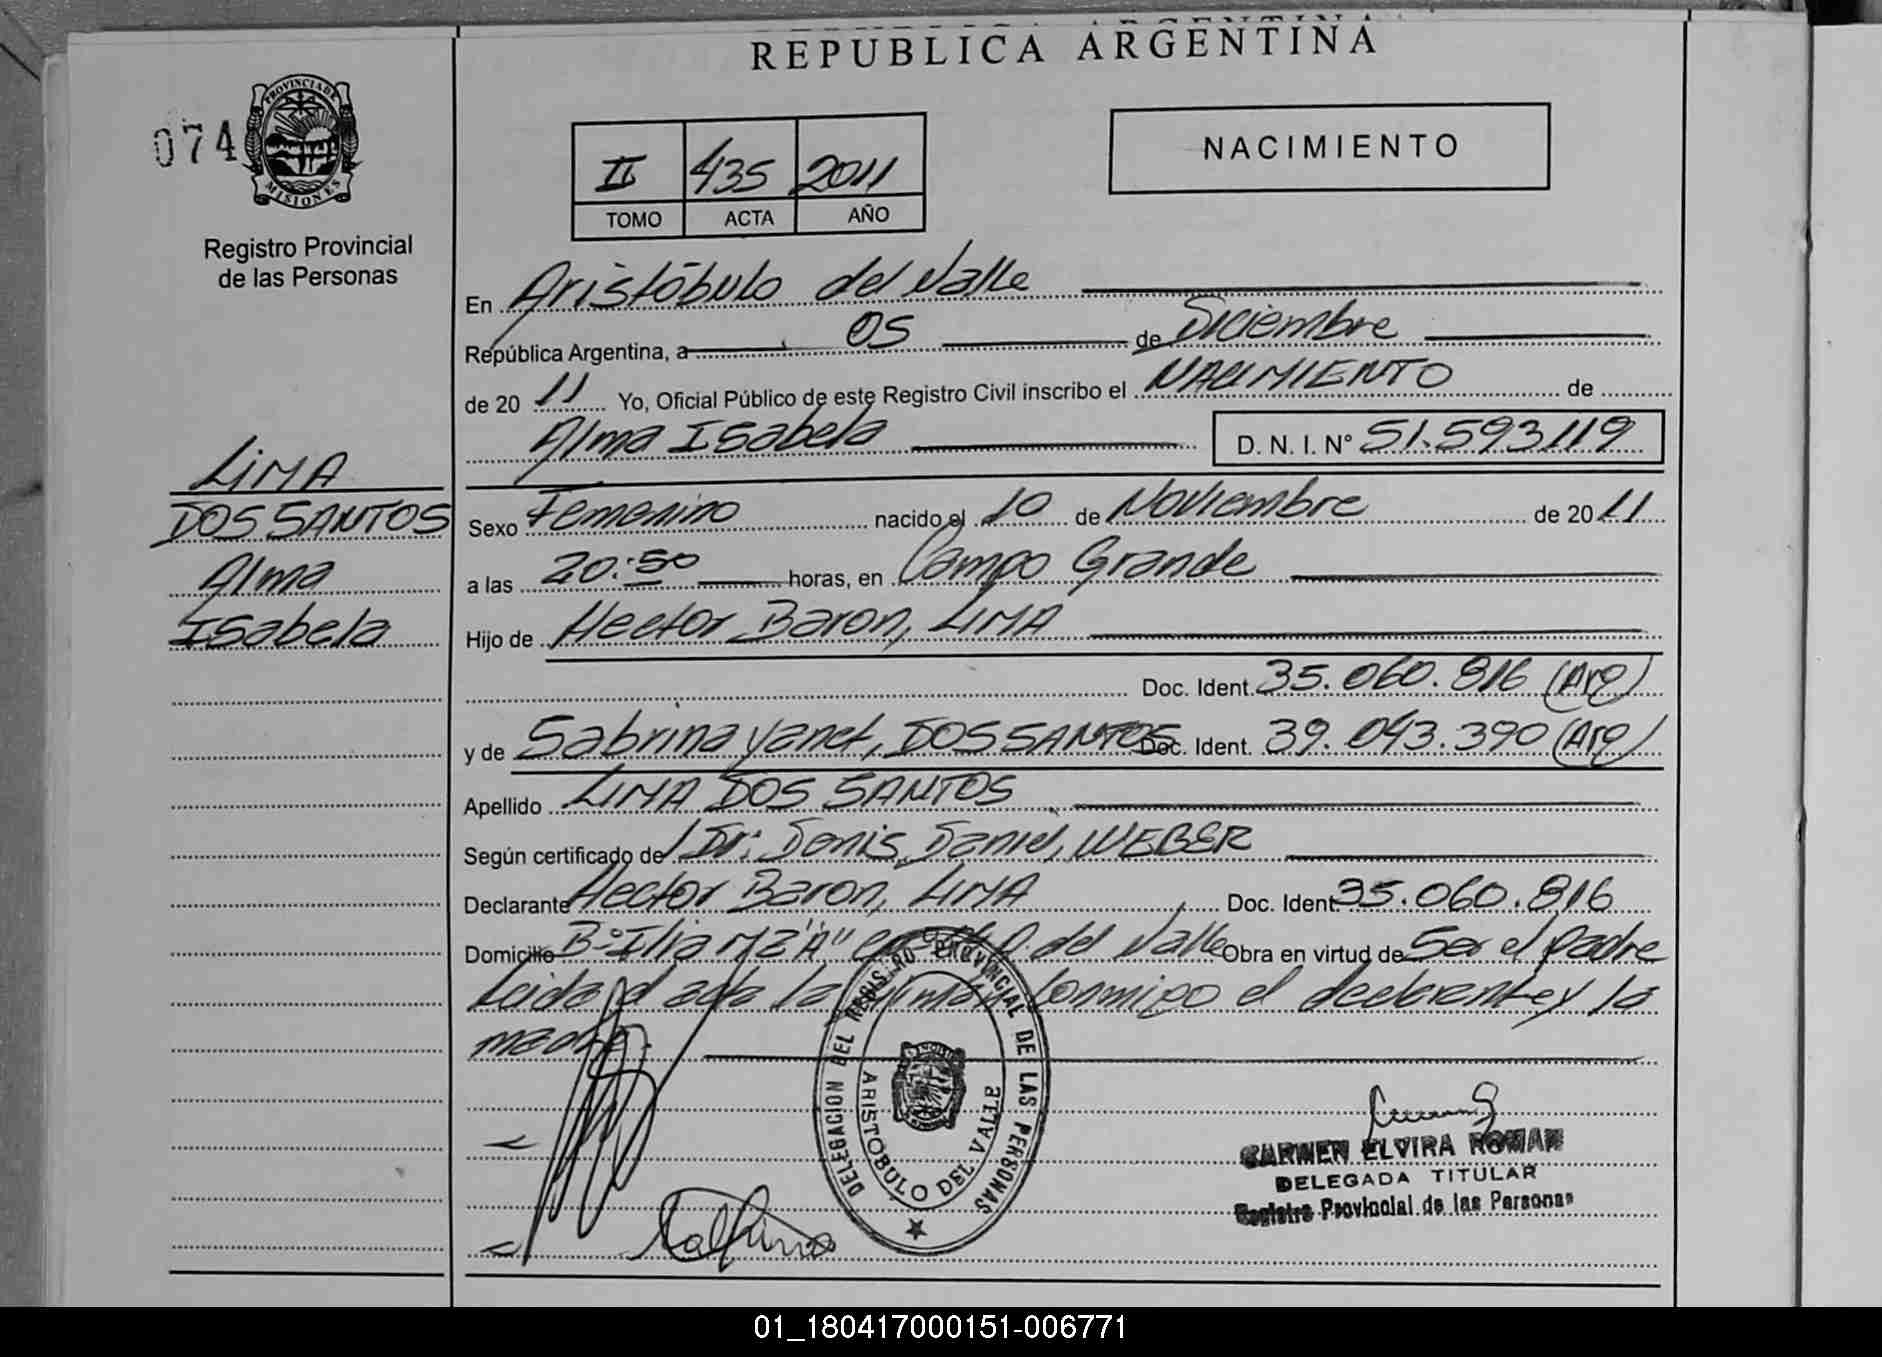 REPUBLICA ARGENTINA
074
PROVINCIA DE
MISIONES
Registro Provincial
de las Personas
II 435 2011
TOMO ACTA AÑO
NACIMIENTO
En Aristóbulo del Valle
República Argentina, a 05 de Diciembre
de 2011 Yo, Oficial Público de este Registro Civil inscribo el NACIMIENTO de
Alma Isabela D. N. I. N° 51.593.119
LIMA
DOS SANTOS
Alma
Isabela
Sexo Femenino nacido el 10 de Noviembre de 2011
a las 20:50 horas, en Campo Grande
Hijo de Hector Baron, LIMA
Doc. Ident. 35.060.816 (Arg)
y de Sabrina Yanet, DOS SANTOS Doc. Ident. 39.043.390 (Arg)
Apellido LIMA DOS SANTOS
Según certificado de Dr. Denis Daniel, WEBER
Declarante Hector Baron, LIMA Doc. Ident. 35.060.816
Domicilio B° Ilia MZ "A" del Valle Obra en virtud de Ser el padre
Leida el acta la conmigo el declarante y la
madre.
DELEGACION DEL REGISTRO PROVINCIAL DE LAS PERSONAS
ARISTOBULO DEL VALLE
CARMEN ELVIRA ROMAN
DELEGADA TITULAR
Registro Provincial de las Personas
01_180417000151-006771